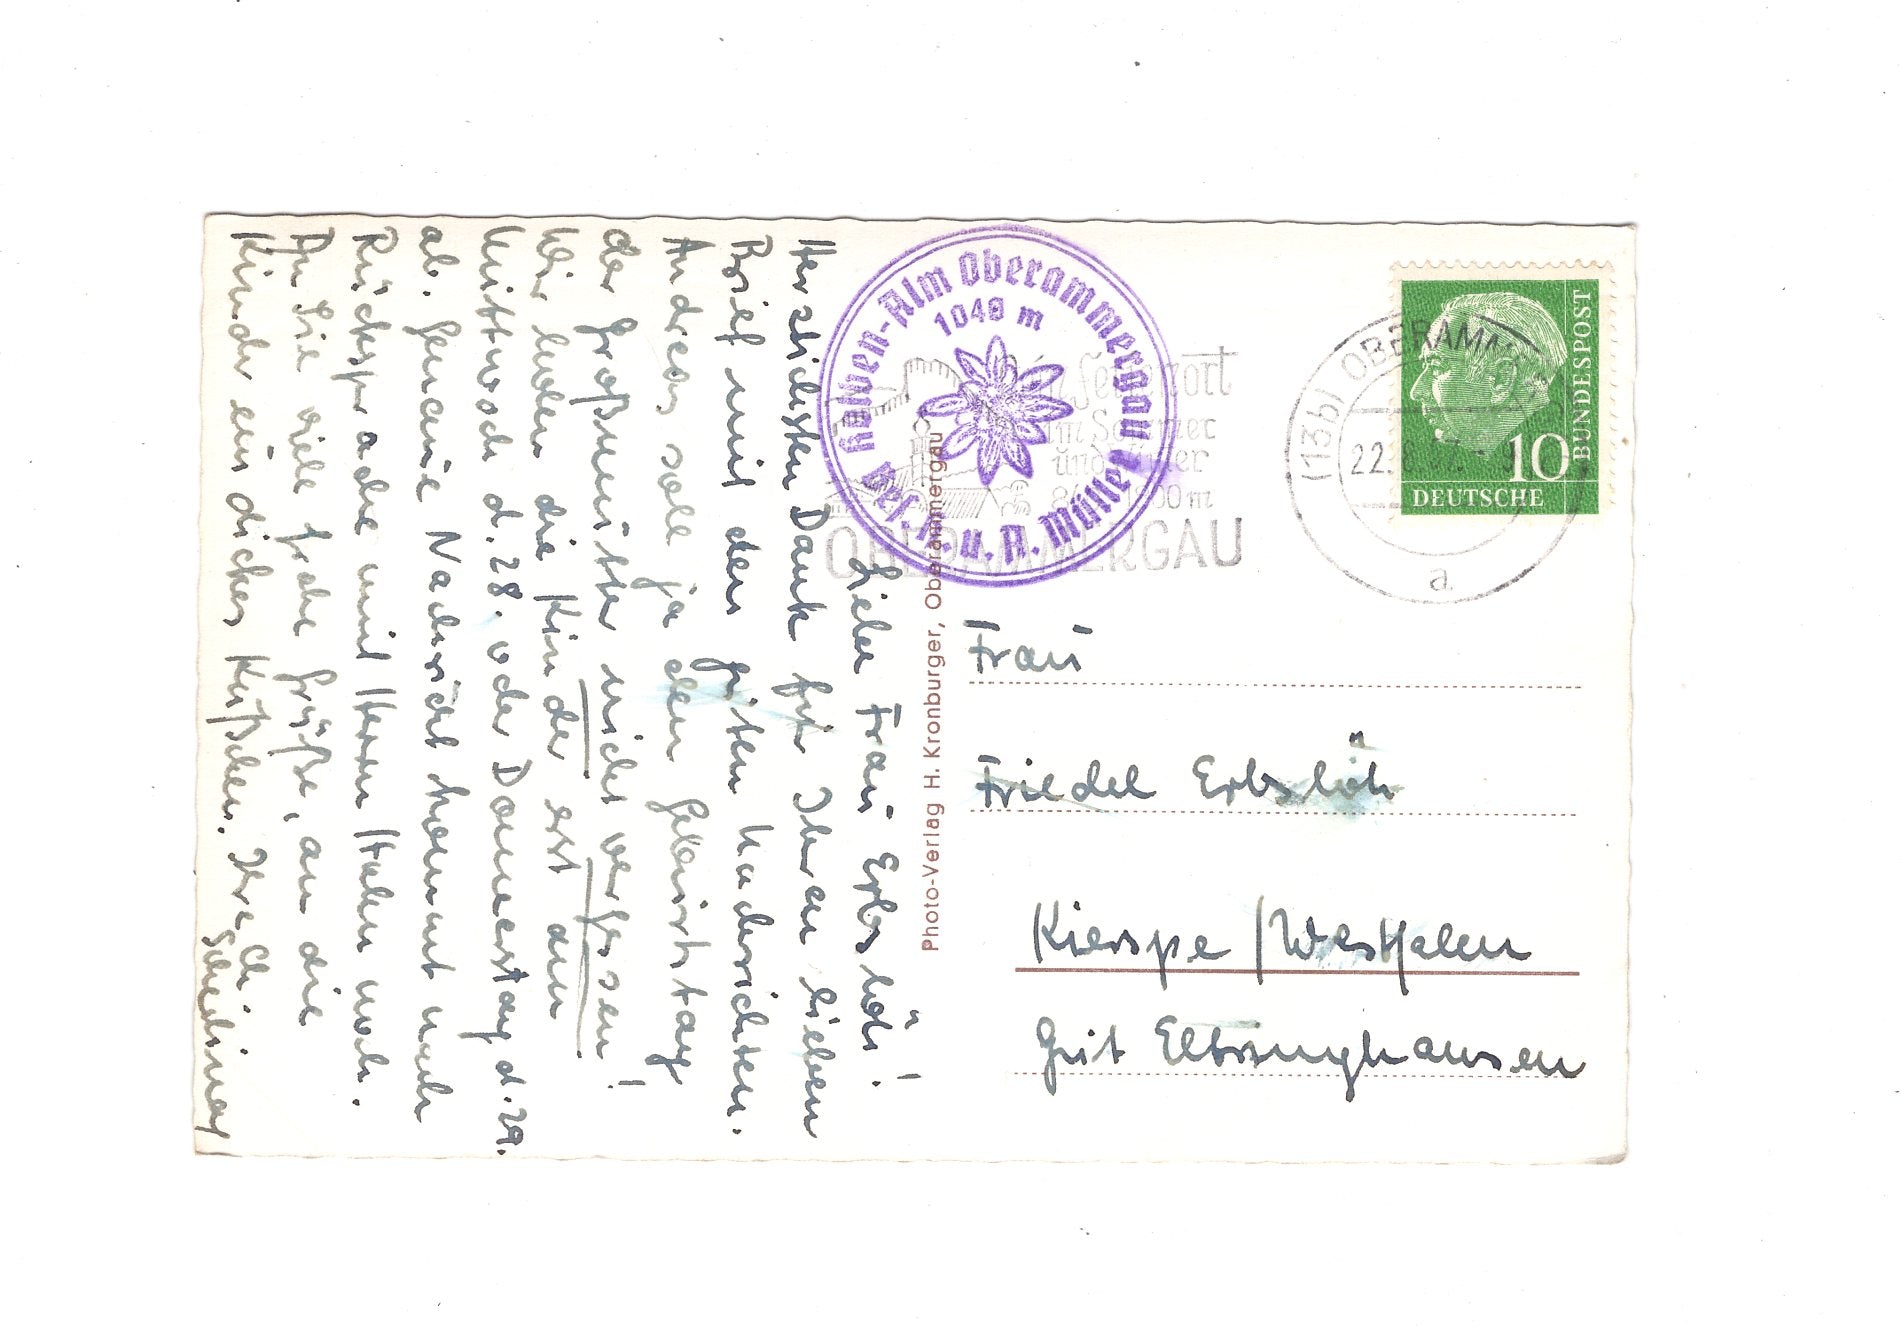 Liebe Frau Erbslöh!
Herzlichsten Dank für Ihren lieben
Brief mit den guten Nachrichten.
Andreas soll ja den Geburtstag
der Großmutter nicht vergessen!
Wir holen die Kinder erst am
Mittwoch d. 28. oder Donnerstag d. 29.
ab. Genaue Nachricht kommt nach
Rücksprache mit Herrn noch.
An Sie viele frohe Grüße, an die
Kinder ein dickes Küßchen. Ihre Ch.
Kolben-Alm Oberammergau
1040 m
Bes. u. A. Müller
Ein Ferienort
im Sommer
und Winter
OBERAMMERGAU
(13b) OBERAMM
22.
a
DEUTSCHE
BUNDESPOST
10
Photo-Verlag H. Kronburger, Oberammergau
Frau
Friedel Erbslöh
Kierspe / Westfalen
Gut Elbringhausen